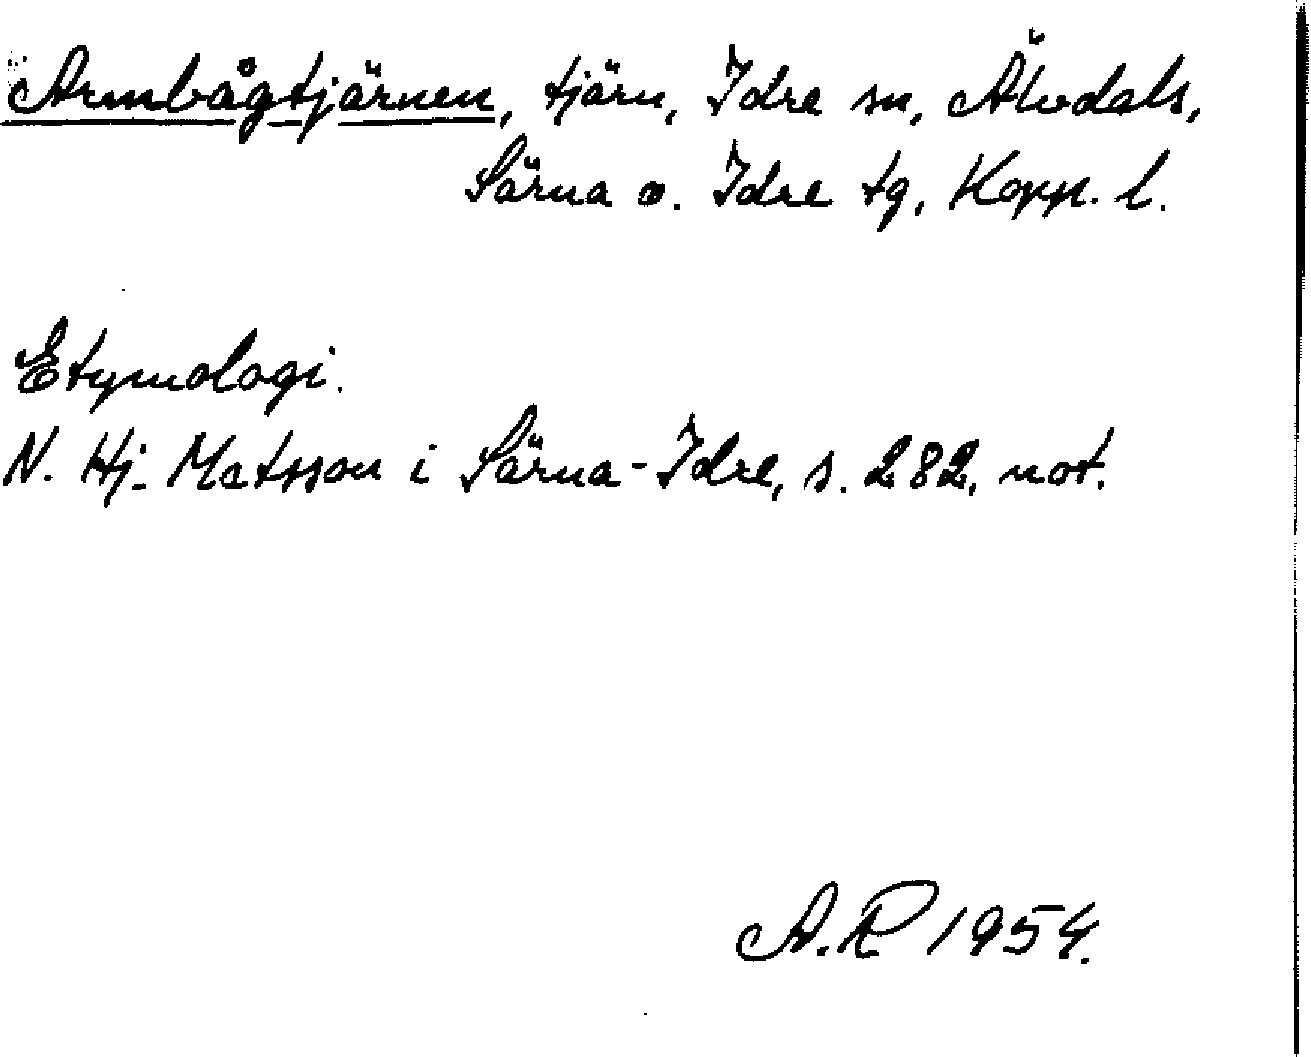 Armbågtjärnen, tjärn, Idre sn, Älvdals,
Särna o. Idre tg, Kopp. l.
Etymologi.
N. Hj. Matsson i Särna-Idre, s. 282, not.
A.R 1954.